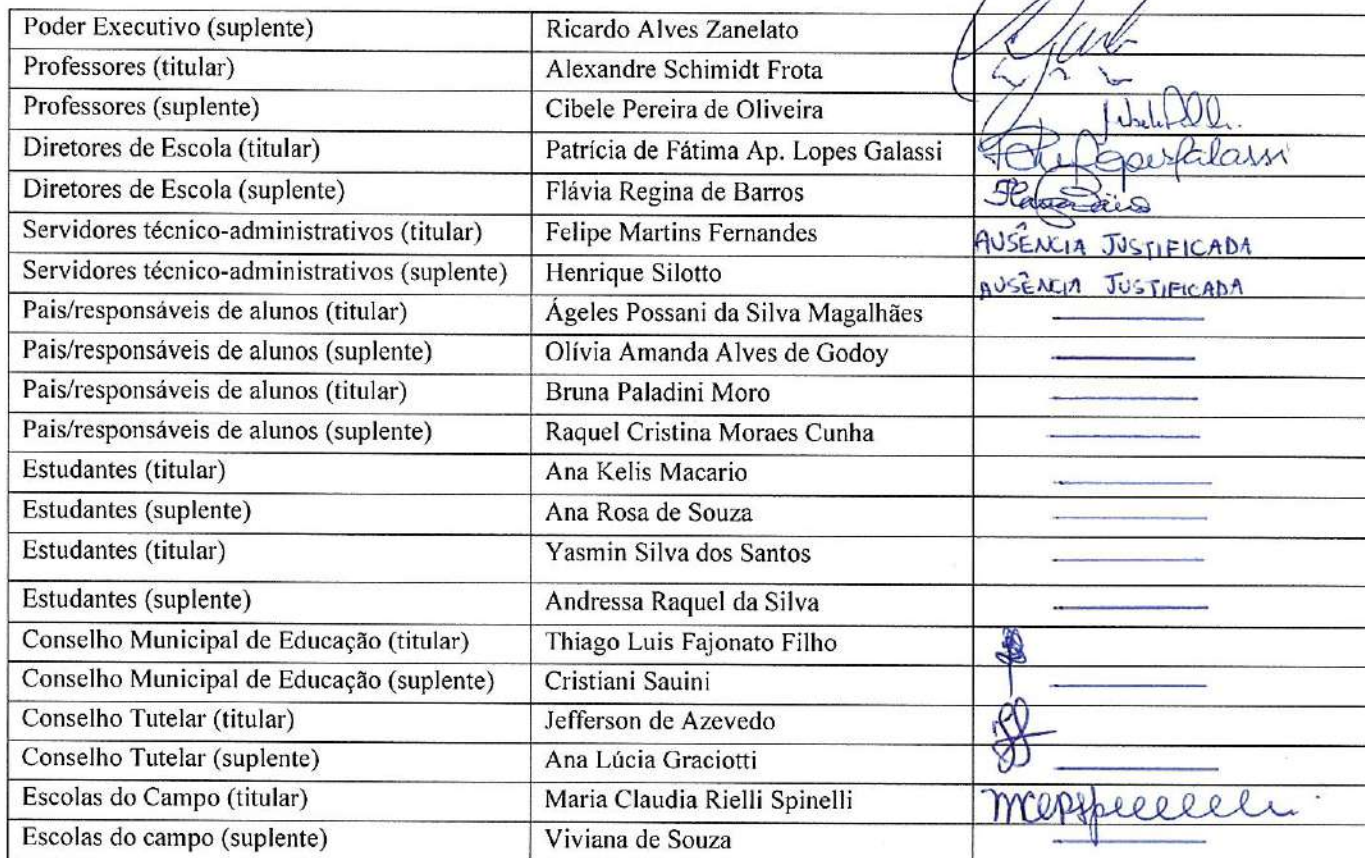 Poder Executivo (suplente) Ricardo Alves Zanelato
Professores (titular) Alexandre Schimidt Frota
Professores (suplente) Cibele Pereira de Oliveira
Diretores de Escola (titular) Patrícia de Fátima Ap. Lopes Galassi
Diretores de Escola (suplente) Flávia Regina de Barros
Servidores técnico-administrativos (titular) Felipe Martins Fernandes AUSÊNCIA JUSTIFICADA
Servidores técnico-administrativos (suplente) Henrique Silotto AUSÊNCIA JUSTIFICADA
Pais/responsáveis de alunos (titular) Ágeles Possani da Silva Magalhães
Pais/responsáveis de alunos (suplente) Olívia Amanda Alves de Godoy
Pais/responsáveis de alunos (titular) Bruna Paladini Moro
Pais/responsáveis de alunos (suplente) Raquel Cristina Moraes Cunha
Estudantes (titular) Ana Kelis Macario
Estudantes (suplente) Ana Rosa de Souza
Estudantes (titular) Yasmin Silva dos Santos
Estudantes (suplente) Andressa Raquel da Silva
Conselho Municipal de Educação (titular) Thiago Luis Fajonato Filho
Conselho Municipal de Educação (suplente) Cristiani Sauini
Conselho Tutelar (titular) Jefferson de Azevedo
Conselho Tutelar (suplente) Ana Lúcia Graciotti
Escolas do Campo (titular) Maria Claudia Rielli Spinelli
Escolas do campo (suplente) Viviana de Souza